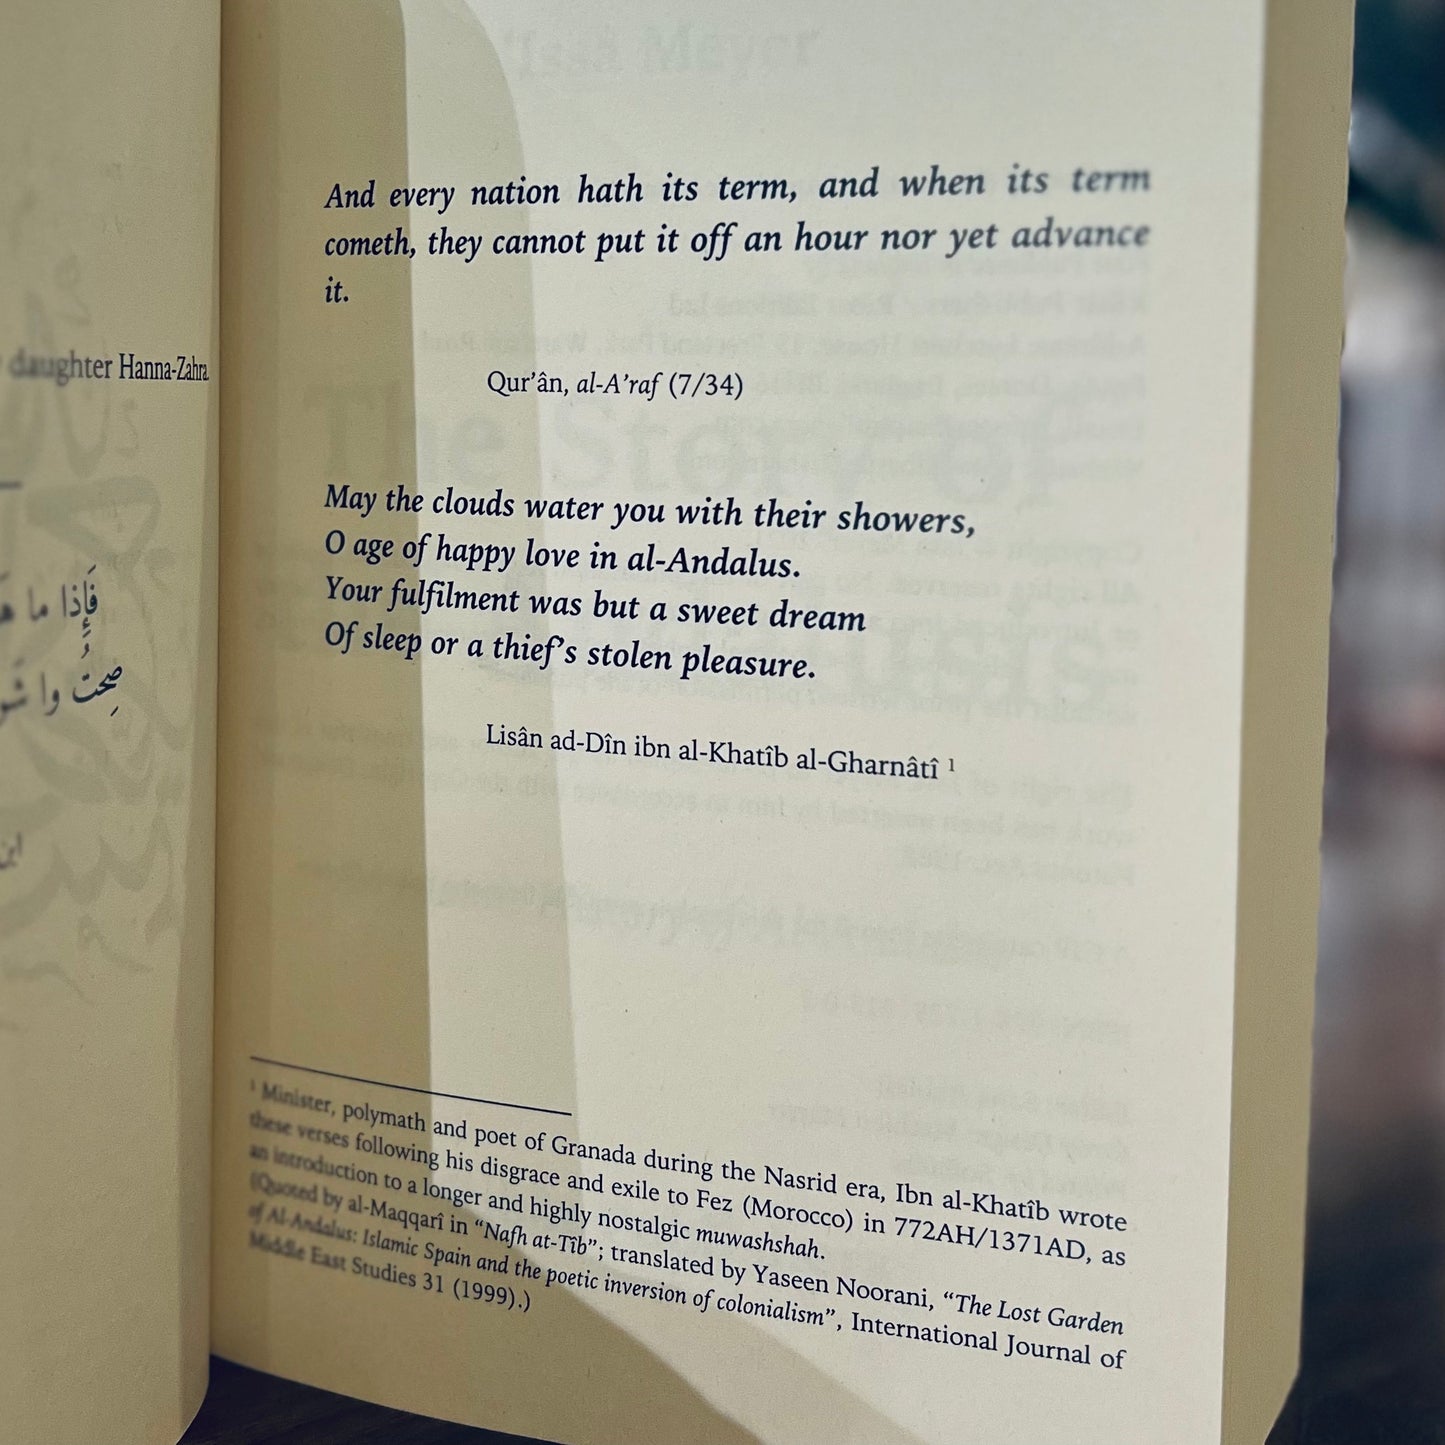 daughter Hanna-Zahra.
فَإِذا ما
صِحتُ وا
ابن
'Issâ Meyer
And every nation hath its term, and when its term
cometh, they cannot put it off an hour nor yet advance
it.
Qur'ân, al-A'raf (7/34)
The Story of
May the clouds water you with their showers,
O age of happy love in al-Andalus.
Your fulfilment was but a sweet dream
Of sleep or a thief's stolen pleasure.
Lisân ad-Dîn ibn al-Khatîb al-Gharnâtî ¹
¹ Minister, polymath and poet of Granada during the Nasrid era, Ibn al-Khatîb wrote
these verses following his disgrace and exile to Fez (Morocco) in 772AH/1371AD, as
an introduction to a longer and highly nostalgic muwashshah.
(Quoted by al-Maqqarî in “Nafh at-Tîb”; translated by Yaseen Noorani, “The Lost Garden
of Al-Andalus: Islamic Spain and the poetic inversion of colonialism”, International Journal of
Middle East Studies 31 (1999).)